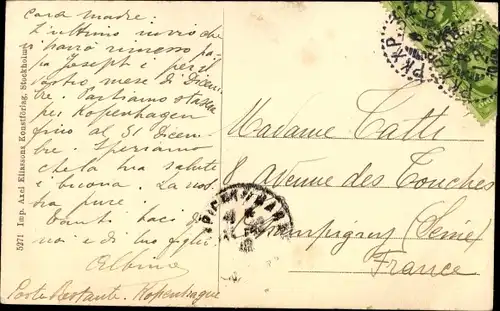 cara madre:
L'ultimo invio che
si farà rimesso pa
pa Joseph i per il
vostro mese di Dicem
bre. Partiamo stasera
per Kopenhagen
fino al 31 Dicem
bre. Speriamo
che la tua salute
è buona. La nos
tra pure.
Tanti baci da
noi e di tuo figlio
Albino
Poste Restante. Kopenhague
5271 Imp. Axel Eliassons Konstförlag, Stockholm
PKXP
Madame Catti
8 Avenue des Touches
Champigny (Seine)
France